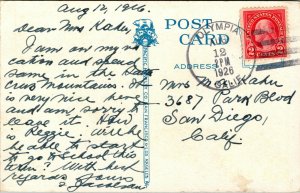 Aug 12, 1926.
Dear Mrs Kahn,
I am on my va
cation and spend
some in the Santa
Cruz Mountains. It
is very nice here
and am sorry to
leave it. How
is Reggie; will he
be able to start
to go to school this
term? With best
regards yours
J. Jacobson
POST
CARD
ADDRESS
OLYMPIA
AUG
12
PM
1926
CALIF.
Mrs Kahn
3687 Park Blvd
San Diego,
Calif.